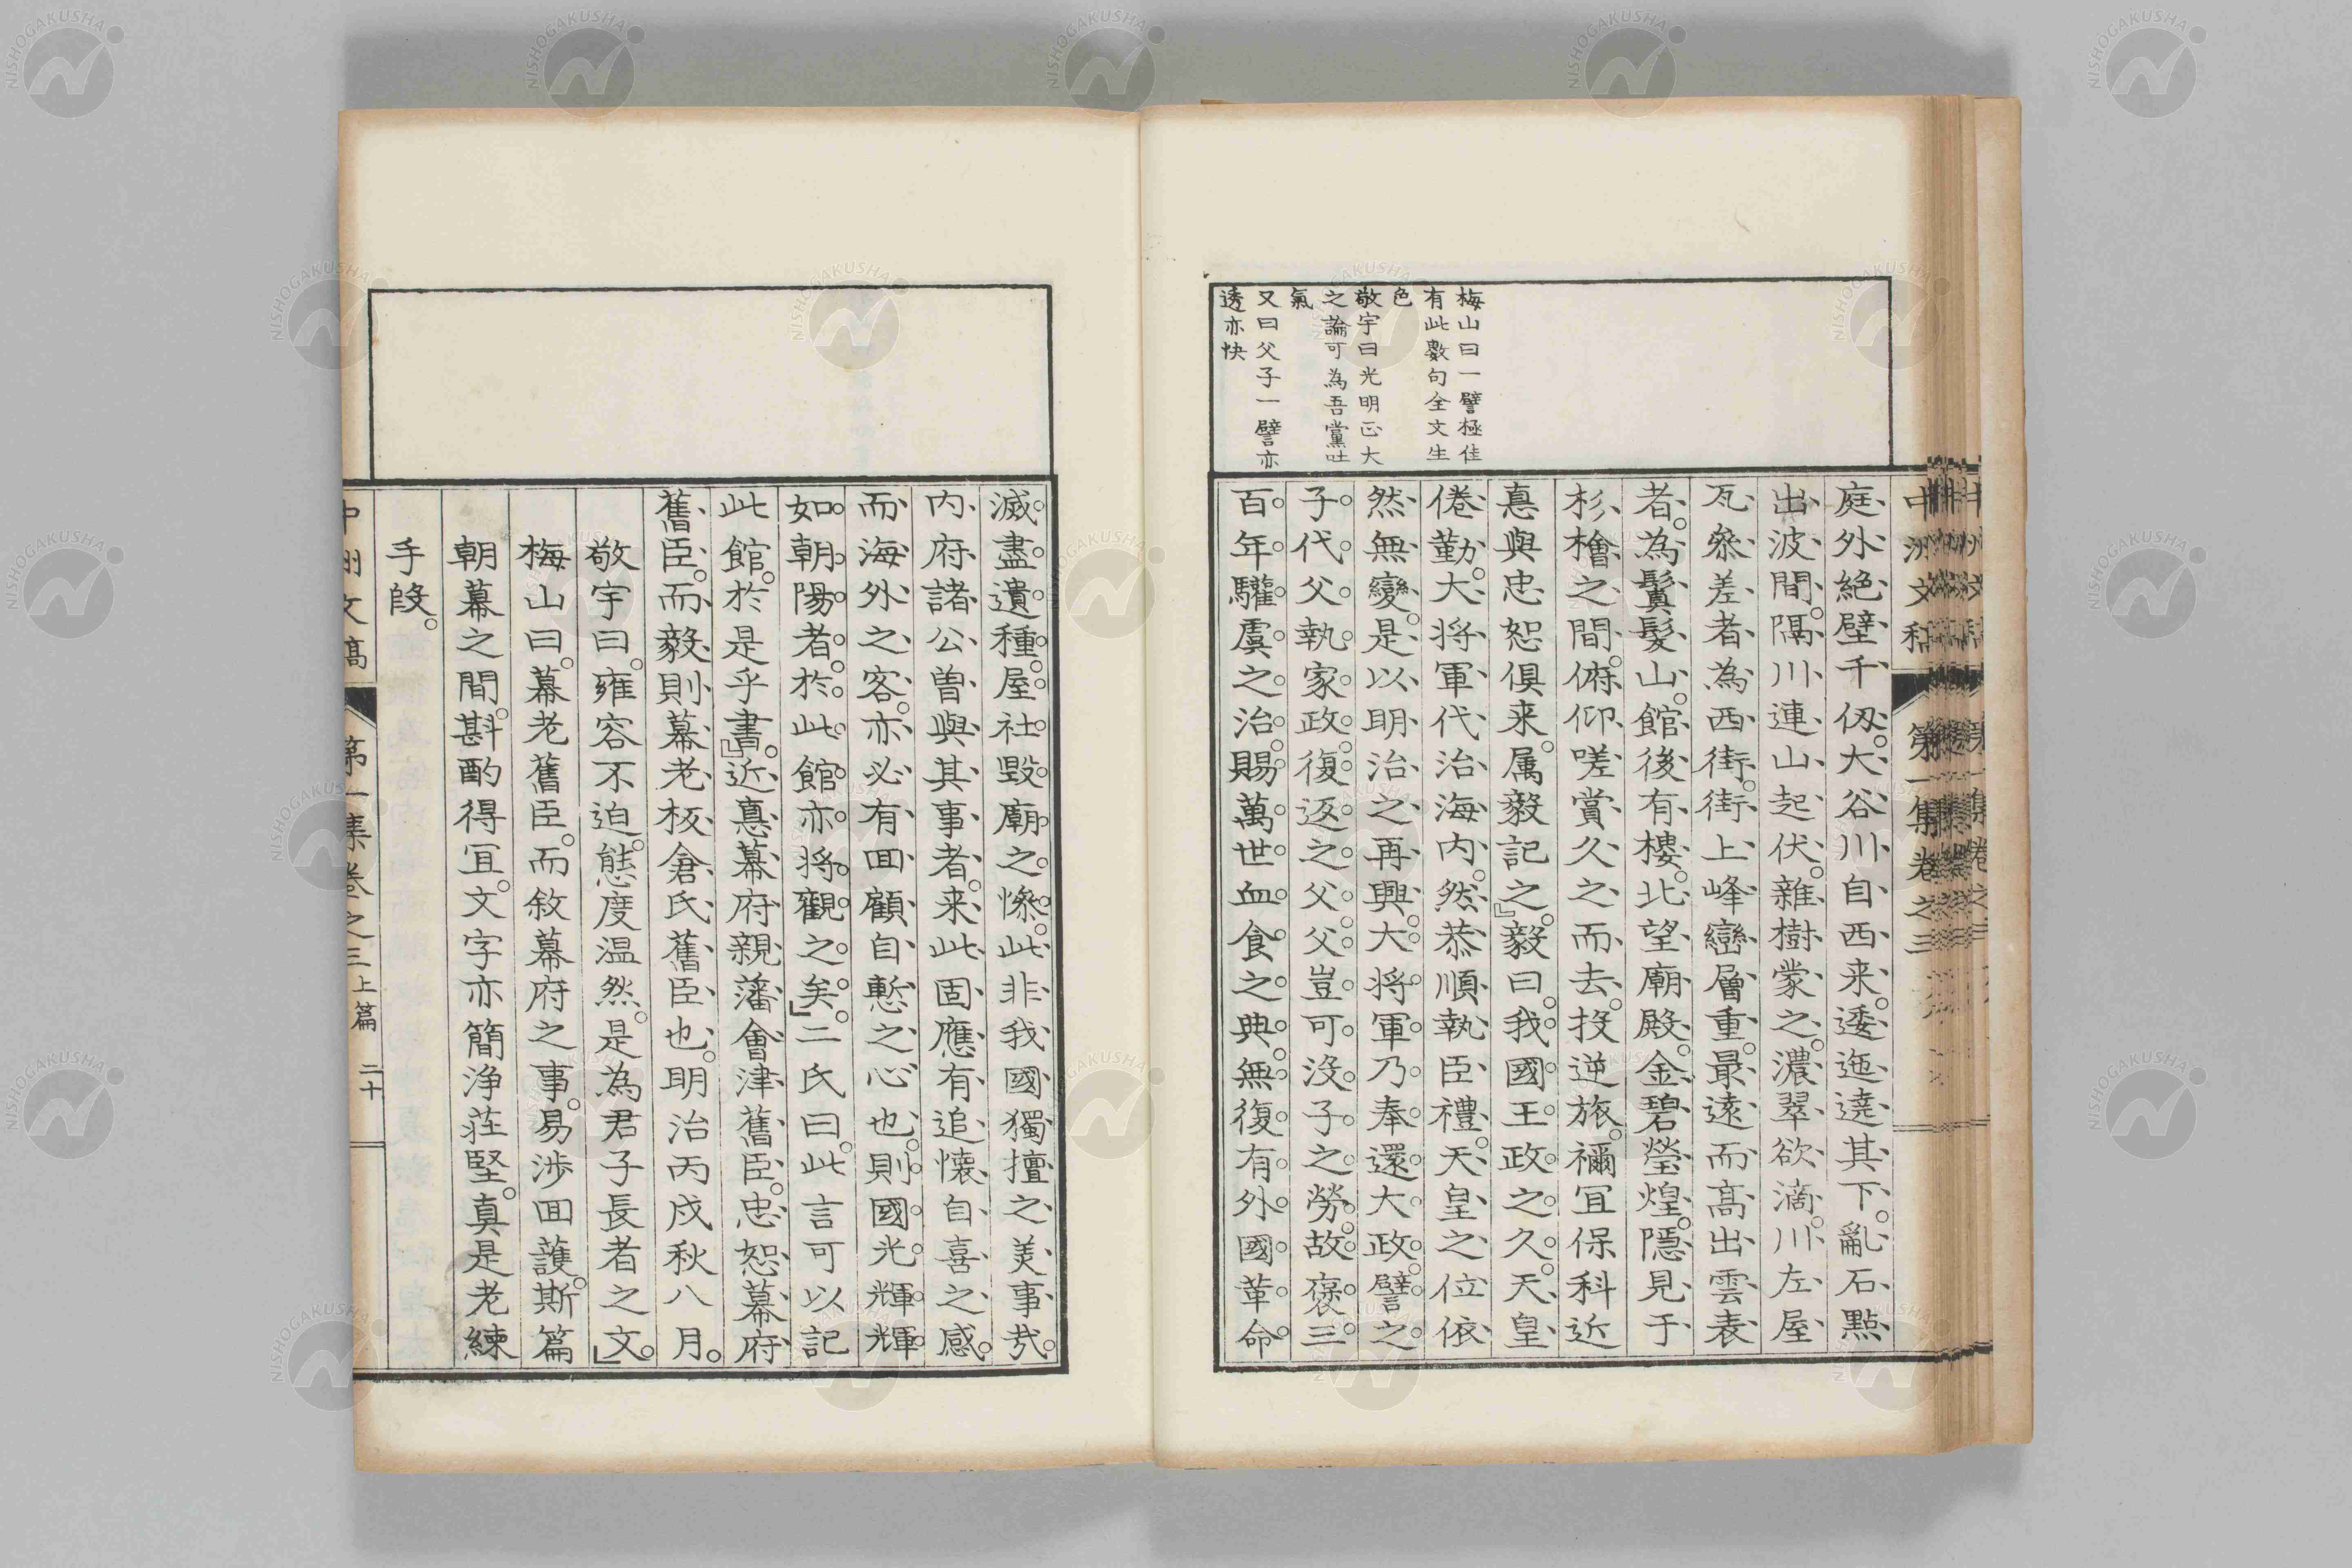 梅山曰一譬極佳
有此數句全文生
色
敬宇曰光明正大
之論可為吾黨吐
氣
又曰父子一譬亦
透亦快
庭外絶壁千仭。大谷川自西来。逶迤遶其下。亂石點
出波間。隔川連山起伏。雜樹蒙之。濃翠欲滴。川左屋
瓦叅差者為西街。街上峰巒層重。最遠而高出雲表
者。為鬟髮山。館後有樓。北望廟殿。金碧瑩煌。隱見于
杉檜之間。俯仰嗟賞久之而去。投逆旅。禰冝保科近
悳與忠恕俱来。属毅記之。』毅曰。我國王政之久。天皇
倦勤。大将軍代治海内。然恭順執臣禮。天皇之位依
然無變。是以明治之再興。大将軍乃奉還大政。譬之
子代父執家政。復返之父。父豈可沒子之勞。故褒三
百年驩虞之治。賜萬世血食之典。無復有外國革命
滅盡遺種。屋社毀廟之慘。此非我國獨擅之美事㢤。
内府諸公曽與其事者。来此固應有追懐自喜之感。
而海外之客。亦必有回顧自慙之心也。則國光輝輝
如朝陽者。於此館亦将觀之矣。』二氏曰。此言可以記
此館。於是乎書。』近悳幕府親藩會津舊臣。忠恕幕府
舊臣。而毅則幕老板倉氏舊臣也。明治丙戌秋八月。
敬宇曰。雍容不迫。態度温然。是為君子長者之文。』
梅山曰。幕老舊臣。而敘幕府之事。易渉回護。斯篇
朝幕之間。斟酌得冝。文字亦簡浄荘堅。真是老練
手段。
中洲文稿
第一集卷之三
上篇
二十
中洲文稿
第一集卷之三
NISHOGAKUSHA